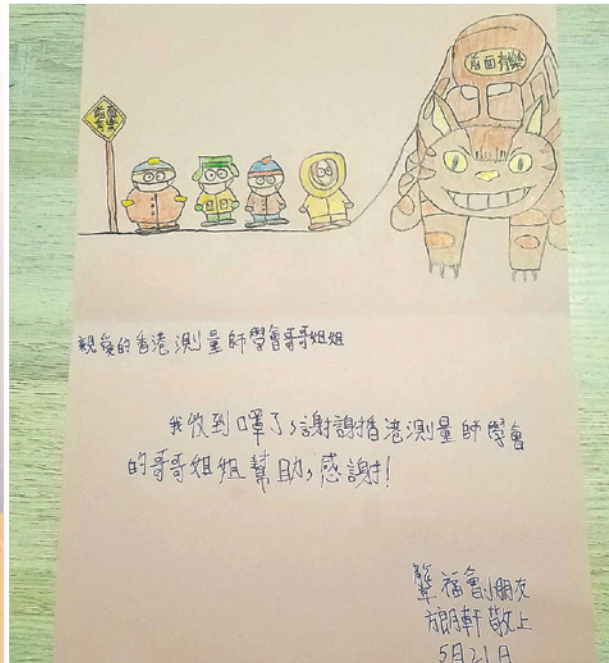 前面有
親愛的香港測量師學會哥哥姐姐
我收到口罩了,謝謝香港測量師學會
的哥哥姐姐幫助,感謝!
聾福會小朋友
方朗軒敬上
5月21日